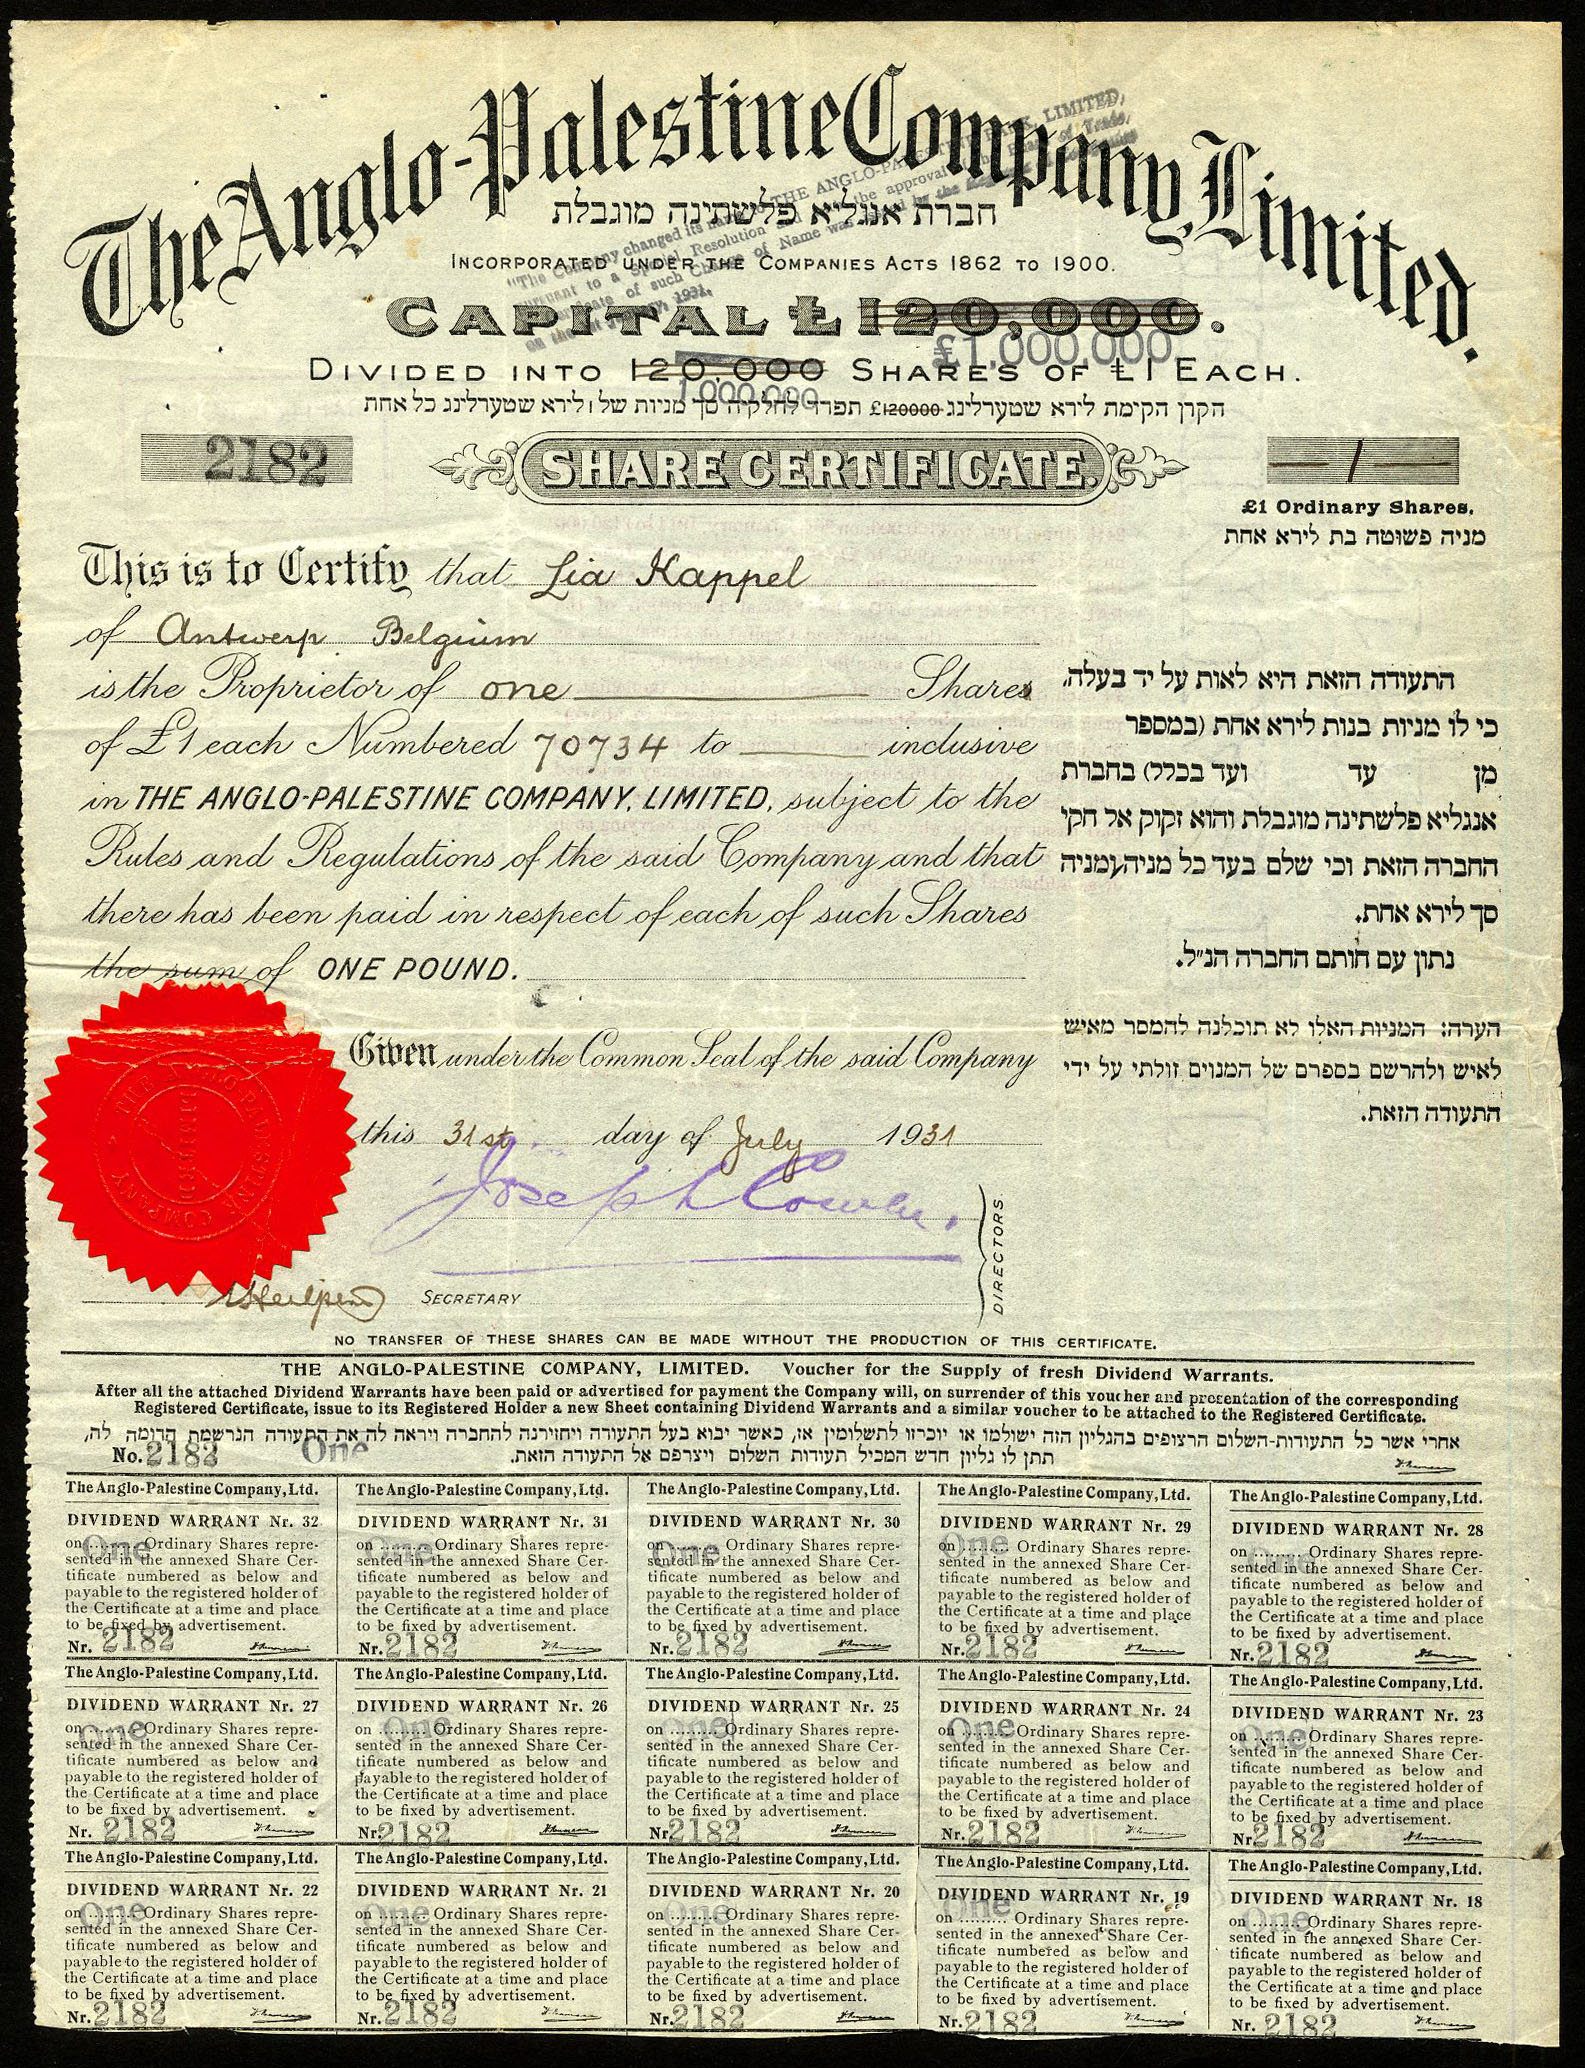 The Anglo-Palestine Company, Limited.
חברת אנגליא פלשתינה מוגבלת
"The Company changed its name to THE ANGLO-PALESTINE BANK, LIMITED,
pursuant to a Special Resolution and the approval of the Board of Trade,
Certificate of such Change of Name was issued by the Registrar of Companies
on the January, 1931.
INCORPORATED UNDER THE COMPANIES ACTS 1862 TO 1900.
CAPITAL £120,000.
£1,000,000
DIVIDED INTO 120,000 SHARES OF £1 EACH.
1,000,000
הקרן הקימת לירא שטערלינג £120000 תפרד לחלקיה סך מניות של 1 לירא שטערלינג כל אחת
2182
SHARE CERTIFICATE.
— 1 —
£1 Ordinary Shares.
מניה פשוטה בת לירא אחת
This is to Certify that Lia Kappel
of Antwerp Belgium
is the Proprietor of one Shares
of £1 each Numbered 70734 to inclusive
in THE ANGLO-PALESTINE COMPANY, LIMITED, subject to the
Rules and Regulations of the said Company and that
there has been paid in respect of each of such Shares
the sum of ONE POUND.
התעודה הזאת היא לאות על יד בעלה,
כי לו מניות בנות לירא אחת (במספר
מן עד ועד בכלל) בחברת
אנגליא פלשתינה מוגבלת והוא זקוק אל חקי
החברה הזאת וכי שלם בעד כל מניה ומניה
סך לירא אחת.
נתון עם חותם החברה הנ"ל.
הערה: המניות האלו לא תוכלנה להמסר מאיש
לאיש ולהרשם בספרם של המנוים זולתי על ידי
התעודה הזאת.
Given under the Common Seal of the said Company
this 31st day of July 1931
THE ANGLO PALESTINE COMPANY
LIMITED
Joseph Cowen.
DIRECTORS
SECRETARY
NO TRANSFER OF THESE SHARES CAN BE MADE WITHOUT THE PRODUCTION OF THIS CERTIFICATE.
THE ANGLO-PALESTINE COMPANY, LIMITED. Voucher for the Supply of fresh Dividend Warrants.
After all the attached Dividend Warrants have been paid or advertised for payment the Company will, on surrender of this voucher and presentation of the corresponding
Registered Certificate, issue to its Registered Holder a new Sheet containing Dividend Warrants and a similar voucher to be attached to the Registered Certificate.
אחרי אשר כל התעודות-השלום הרצופים בהגליון הזה ישולמו או יוכרזו לתשלומין אז, כאשר יבוא בעל התעודה ויחזירנה להחברה ויראה לה את התעודה הנרשמת הדומה לה,
תתן לו גליון חדש המכיל תעודות השלום ויצרפם אל התעודה הזאת.
No. 2182 One
The Anglo-Palestine Company, Ltd.
DIVIDEND WARRANT Nr. 32
on One Ordinary Shares repre-
sented in the annexed Share Cer-
tificate numbered as below and
payable to the registered holder of
the Certificate at a time and place
to be fixed by advertisement.
Nr. 2182
The Anglo-Palestine Company, Ltd.
DIVIDEND WARRANT Nr. 31
on One Ordinary Shares repre-
sented in the annexed Share Cer-
tificate numbered as below and
payable to the registered holder of
the Certificate at a time and place
to be fixed by advertisement.
Nr. 2182
The Anglo-Palestine Company, Ltd.
DIVIDEND WARRANT Nr. 30
on One Ordinary Shares repre-
sented in the annexed Share Cer-
tificate numbered as below and
payable to the registered holder of
the Certificate at a time and place
to be fixed by advertisement.
Nr. 2182
The Anglo-Palestine Company, Ltd.
DIVIDEND WARRANT Nr. 29
on One Ordinary Shares repre-
sented in the annexed Share Cer-
tificate numbered as below and
payable to the registered holder of
the Certificate at a time and place
to be fixed by advertisement.
Nr. 2182
The Anglo-Palestine Company, Ltd.
DIVIDEND WARRANT Nr. 28
on One Ordinary Shares repre-
sented in the annexed Share Cer-
tificate numbered as below and
payable to the registered holder of
the Certificate at a time and place
to be fixed by advertisement.
Nr. 2182
The Anglo-Palestine Company, Ltd.
DIVIDEND WARRANT Nr. 27
on One Ordinary Shares repre-
sented in the annexed Share Cer-
tificate numbered as below and
payable to the registered holder of
the Certificate at a time and place
to be fixed by advertisement.
Nr. 2182
The Anglo-Palestine Company, Ltd.
DIVIDEND WARRANT Nr. 26
on One Ordinary Shares repre-
sented in the annexed Share Cer-
tificate numbered as below and
payable to the registered holder of
the Certificate at a time and place
to be fixed by advertisement.
Nr. 2182
The Anglo-Palestine Company, Ltd.
DIVIDEND WARRANT Nr. 25
on One Ordinary Shares repre-
sented in the annexed Share Cer-
tificate numbered as below and
payable to the registered holder of
the Certificate at a time and place
to be fixed by advertisement.
Nr. 2182
The Anglo-Palestine Company, Ltd.
DIVIDEND WARRANT Nr. 24
on One Ordinary Shares repre-
sented in the annexed Share Cer-
tificate numbered as below and
payable to the registered holder of
the Certificate at a time and place
to be fixed by advertisement.
Nr. 2182
The Anglo-Palestine Company, Ltd.
DIVIDEND WARRANT Nr. 23
on One Ordinary Shares repre-
sented in the annexed Share Cer-
tificate numbered as below and
payable to the registered holder of
the Certificate at a time and place
to be fixed by advertisement.
Nr. 2182
The Anglo-Palestine Company, Ltd.
DIVIDEND WARRANT Nr. 22
on One Ordinary Shares repre-
sented in the annexed Share Cer-
tificate numbered as below and
payable to the registered holder of
the Certificate at a time and place
to be fixed by advertisement.
Nr. 2182
The Anglo-Palestine Company, Ltd.
DIVIDEND WARRANT Nr. 21
on One Ordinary Shares repre-
sented in the annexed Share Cer-
tificate numbered as below and
payable to the registered holder of
the Certificate at a time and place
to be fixed by advertisement.
Nr. 2182
The Anglo-Palestine Company, Ltd.
DIVIDEND WARRANT Nr. 20
on One Ordinary Shares repre-
sented in the annexed Share Cer-
tificate numbered as below and
payable to the registered holder of
the Certificate at a time and place
to be fixed by advertisement.
Nr. 2182
The Anglo-Palestine Company, Ltd.
DIVIDEND WARRANT Nr. 19
One
on .......... Ordinary Shares repre-
sented in the annexed Share Cer-
tificate numbered as below and
payable to the registered holder of
the Certificate at a time and place
to be fixed by advertisement.
Nr. 2182
The Anglo-Palestine Company, Ltd.
DIVIDEND WARRANT Nr. 18
on One Ordinary Shares repre-
sented in the annexed Share Cer-
tificate numbered as below and
payable to the registered holder of
the Certificate at a time and place
to be fixed by advertisement.
Nr. 2182